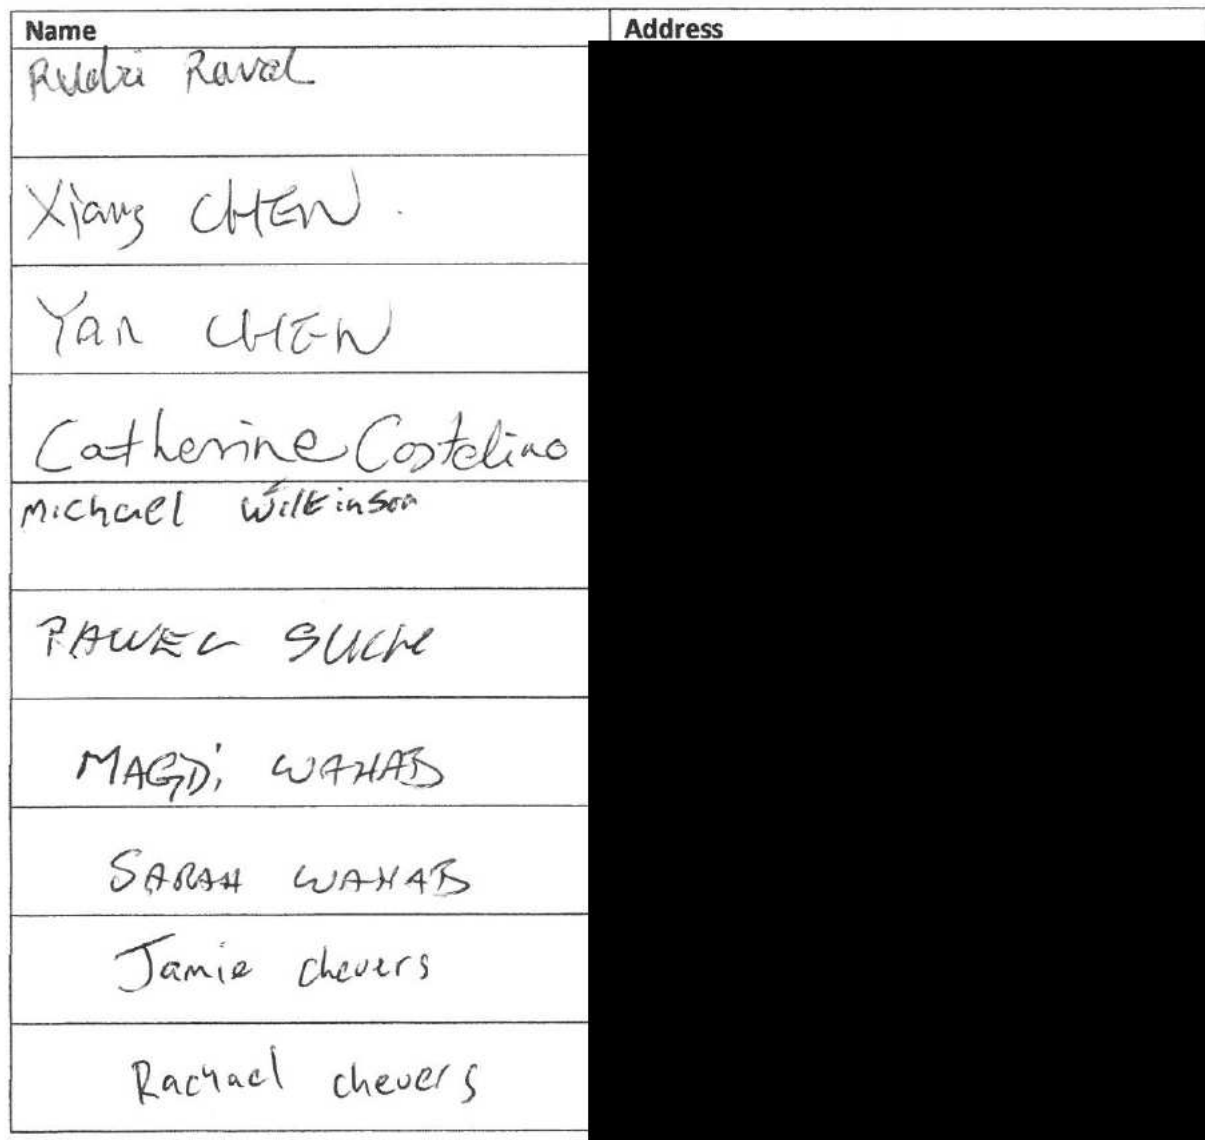 Name Address
Raval
Xiang CHEN.
Yan CHEN
Catherine Costelino
Michael Wilkinson
PAWEL SUCH
MAGDi WAHAB
SARAH WAHAB
Jamie chevers
Rachael chevers